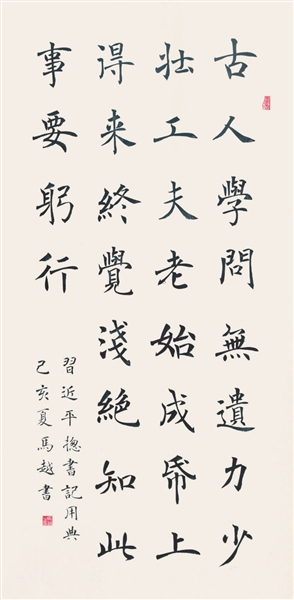 古人學問無遺力少
壮工夫老始成帋上
得来終覺淺絶知此
事要躬行
習近平摠書記用典
己亥夏馬越書